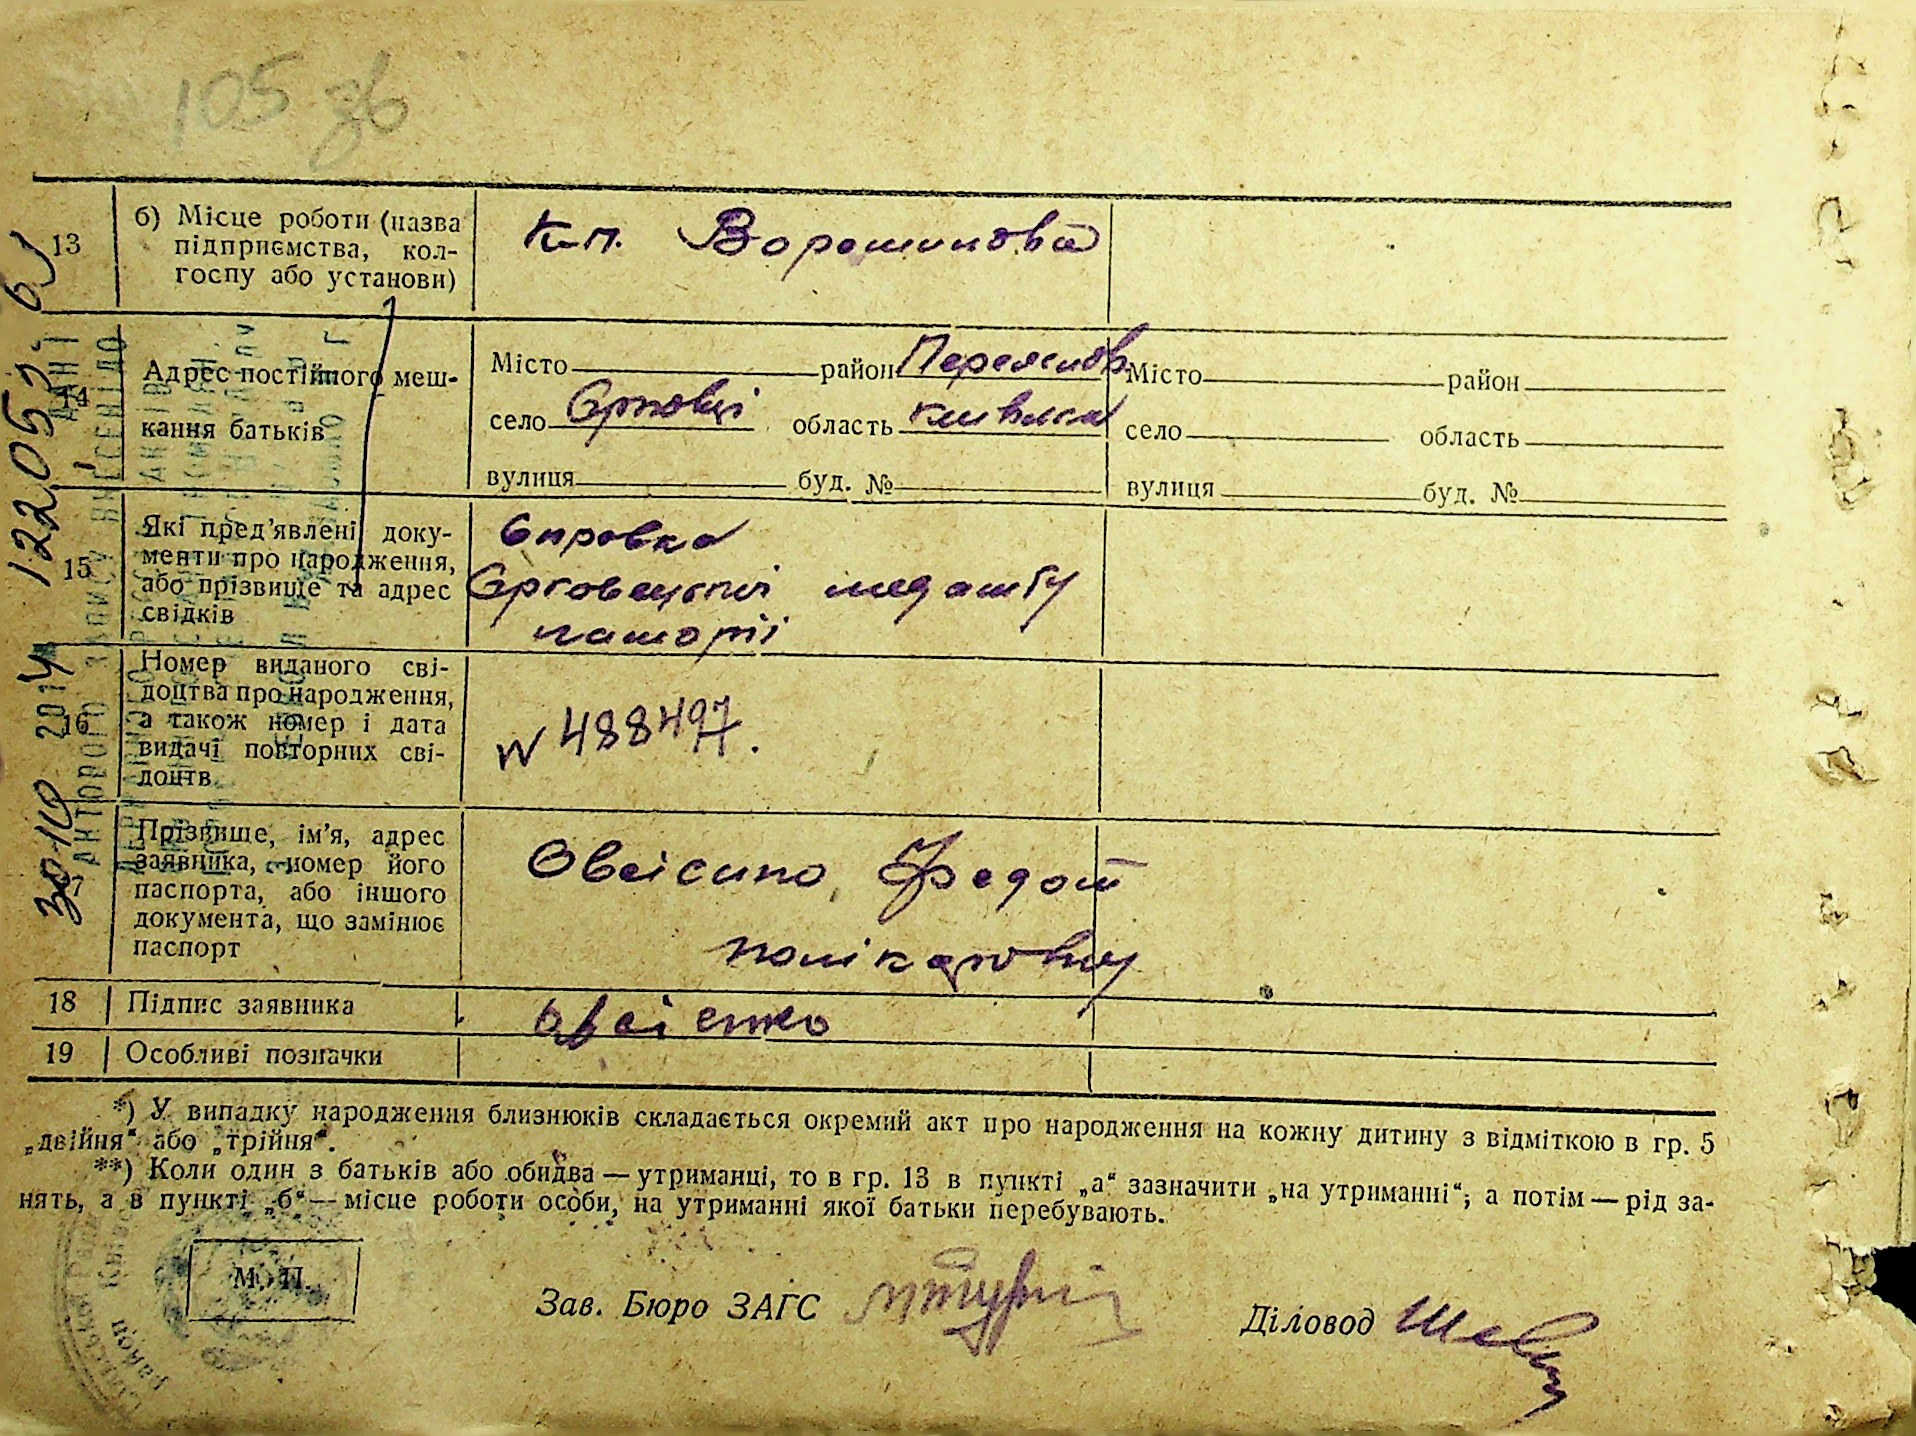 105 зв
13 б) Місце роботи (назва підприємства, кол-
госпу або установи)
К-п. Ворошилова
14 Адрес постійного меш-
кання батьків
Місто район Переяслов.
село Єрковці область київська
вулиця буд. №
Місто район
село область
вулиця буд. №
15 Які пред'явлені доку-
менти про народження,
або прізвище та адрес
свідків
Справка
Єрковецької
16 Номер виданого сві-
доцтва про народження,
а також номер і дата
видачі повторних сві-
доцтв
N 488497.
17 Прізвище, ім'я, адрес
заявника, номер його
паспорта, або іншого
документа, що замінює
паспорт
Овсієнко Федот
Полікарпович
18 Підпис заявника
Овсієнко
19 Особливі позначки
*) У випадку народження близнюків складається окремий акт про народження на кожну дитину з відміткою в гр. 5
„двійня“ або „трійня“.
**) Коли один з батьків або обидва — утриманці, то в гр. 13 в пункті „а“ зазначити „на утриманні“, а потім — рід за-
нять, а в пункті „б“ — місце роботи особи, на утриманні якої батьки перебувають.
М. П.
Зав. Бюро ЗАГС
Діловод